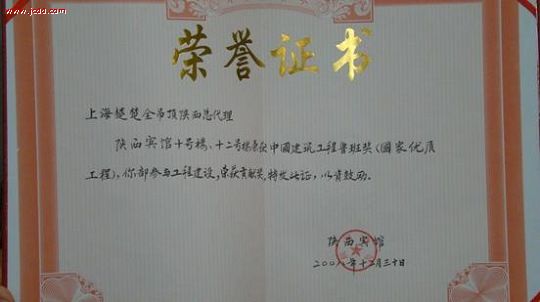 www.jcdd.com
荣誉证书
上海楚楚全吊顶陕西总代理
陕西宾馆十号楼、十二号楼荣获中國建筑工程鲁班奖(國家优质
工程),你部参与工程建设,荣获贡献奖,特发此证,以资鼓励。
陕西宾馆
年十二月三十日